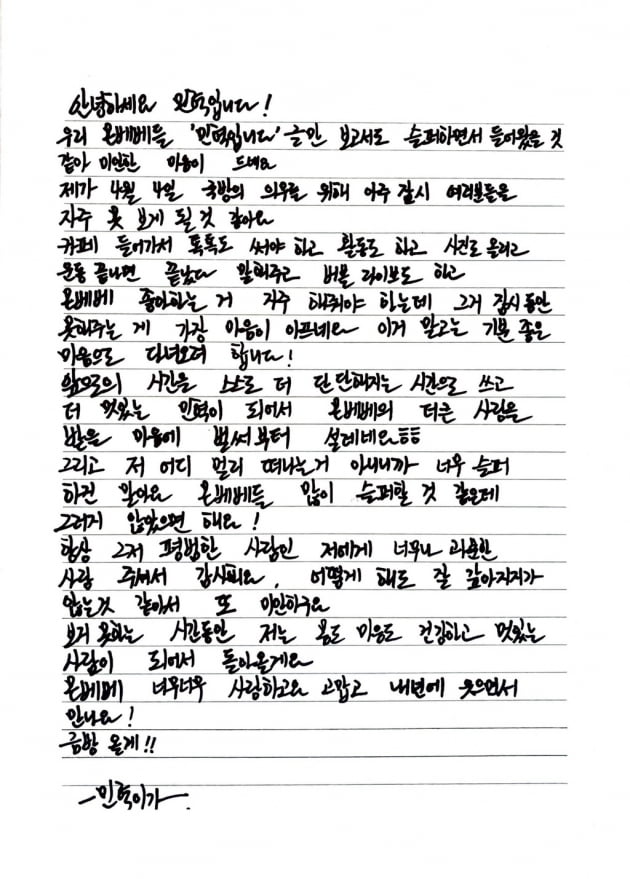 안녕하세요 민혁입니다!
우리 몬베베들 '민혁입니다' 글만 보고서도 슬퍼하면서 들어왔을 것
같아 미안한 마음이 드네요
제가 4월 4일 국방의 의무를 위해 아주 잠시 여러분들을
자주 못 보게 될 것 같아요
카페 들어가서 톡톡도 써야 하고 활동도 하고 사진도 올리고
운동 끝나면 끝났다 말해주고 버블 라이브도 하고
몬베베 좋아하는 거 자주 해줘야 하는데 그거 잠시동안
못해주는 게 가장 마음이 아프네요 이거 말고는 기분 좋은
마음으로 다녀오려 합니다!
앞으로의 시간을 스스로 더 단단해지는 시간으로 쓰고
더 멋있는 민혁이 되어서 몬베베의 더큰 사랑을
받을 마음에 벌써부터 설레네요ㅎㅎ
그리고 저 어디 멀리 떠나는거 아니니까 너무 슬퍼
하진 말아요 몬베베들 많이 슬퍼할 것 같은데
그러지 않았으면 해요!
항상 그저 평범한 사람인 저에게 너무나 과분한
사랑 주셔서 감사해요, 어떻게 해도 잘 갚아지지가
않는것 같아서 또 미안하구요
보지 못하는 시간동안 저는 몸도 마음도 건강하고 멋있는
사람이 되어서 돌아올게요
몬베베 너무너무 사랑하고요 고맙고 내년에 웃으면서
만나요!
금방 올게!!
-민혁이가-